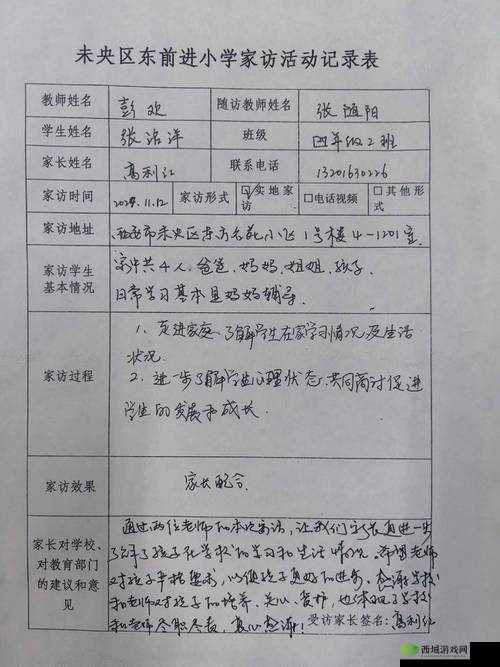 未央区东前进小学家访活动记录表
教师姓名 彭欢 随访教师姓名 张随阳
学生姓名 张洛洋 班级 四年级2班
家长姓名 高利红 联系电话 13201630226
家访时间 2024.11.12 家访形式 ☑实地家访 □电话视频 □其他形式
家访地址 西安市未央区 1号楼4-1201室
家访学生基本情况 家中共4人,爸爸,妈妈,姐姐,孩子.
日常学习基本是妈妈辅导.
家访过程 1、走进家庭,了解学生在家学习情况及生活
状况.
2、进一步了解学生心理状态,共同商讨促进
学生的发展和成长.
家访效果 家长配合.
家长对学校、对教育部门的建议和意见
通过两位老师的本次家访,让我们家长更进一步
了解了孩子在学校的学习和生活情况。希望老师
对孩子严格要求,以便孩子更好的进步,感谢学校
和老师对孩子的培养、关心、爱护,也体现了学校
和老师尽职尽责,真心感谢!
受访家长签名:高利红
西城游戏网